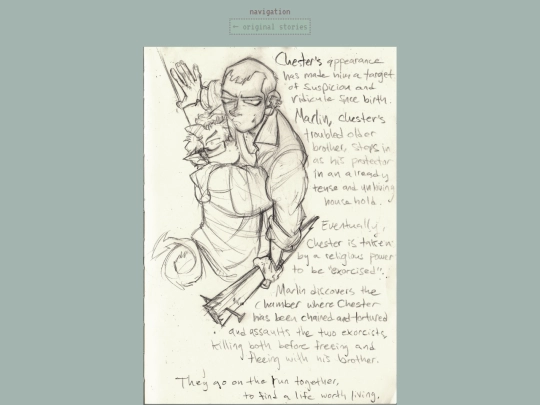 navigation
← original stories
Chester's appearance
has made him a target
of suspicion and
ridicule since birth.
Marlin, Chester's
troubled older
brother, steps in
as his protector
in an already
tense and unloving
household.
Eventually,
Chester is taken
by a religious power
to be "exorcised".
Marlin discovers the
chamber where Chester
has been chained and tortured
and assaults the two exorcists,
killing both before freeing and
fleeing with his brother.
They go on the run together,
to find a life worth living.